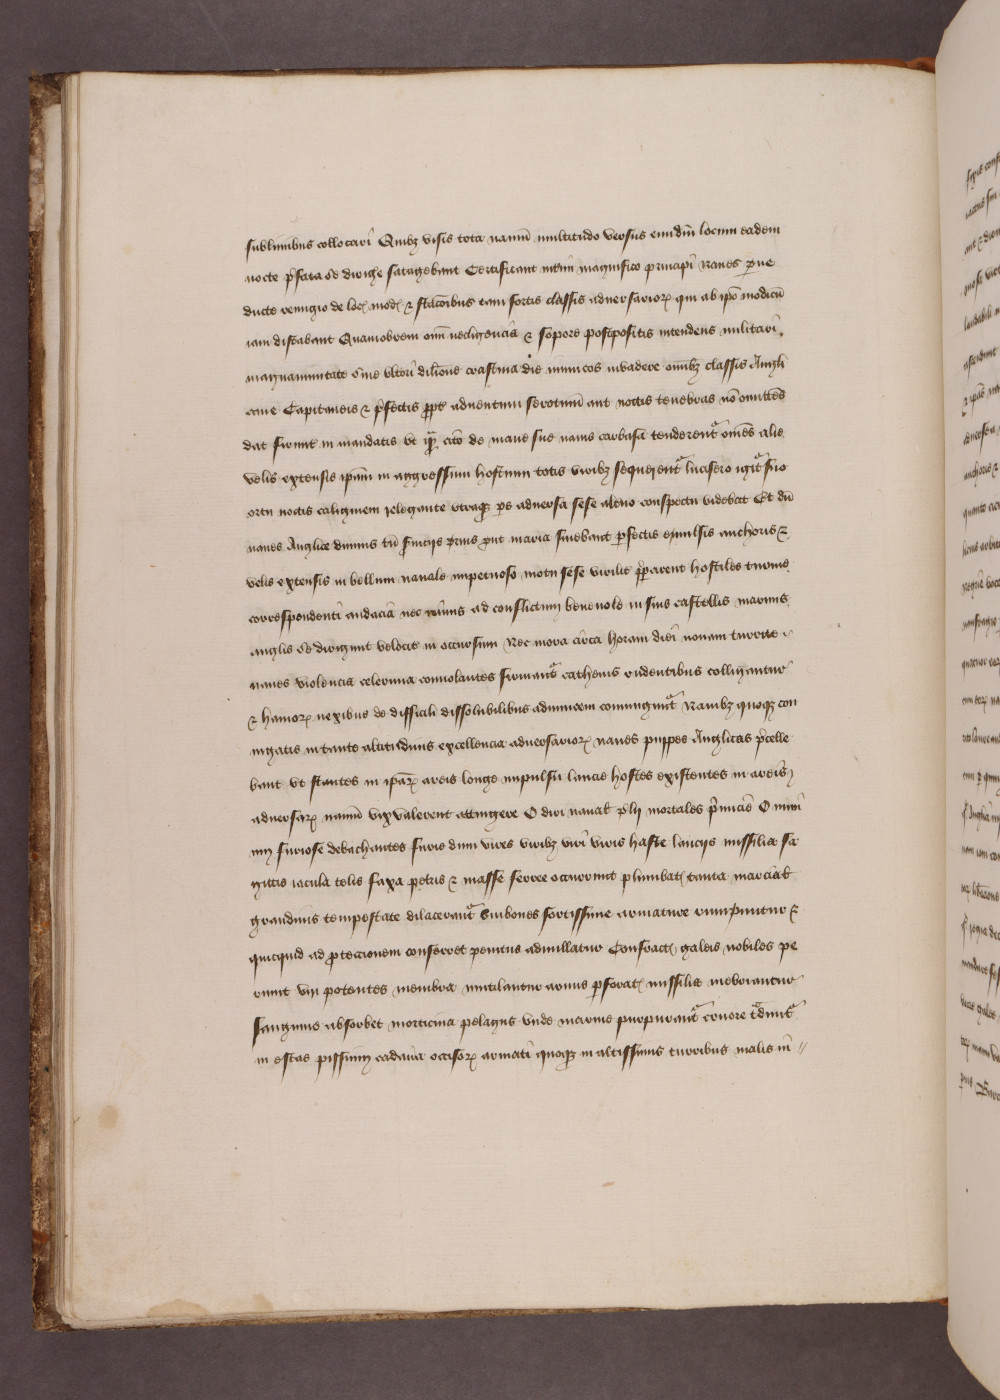 sublimibus collocari Quibz visis tota nauiu multitudo versus eundm locum eadem
nocte pfata se dirige satagebant Certificant ntim magnifico principi Naues pue
ducte remigio de loc mod ꝛ stacoibus tam fortis classis aduersarioꝝ qui ab ipo modicu
iam distabant Quamobrem omi necligencia ꝛ sopore postpositis intendens militari
magnanimitate sine vltori dilone crastina die inimicos inuadere omibz classis Angli
cane Capitaneis ꝛ pfectis ppt aduentum serotinu aut noctis tenebras no omittes
dat firmit in mandatis vt cito de mane sue nauis carbasa tenderent omes alie
velis extensis ipam in aggressum hostium totis viribz sequerent lucifero igit suo
ortu noctis caliginem relegante vtraqz ps aduersa sese alterno conspectu videbat Et du
naues Anglice maria sinebant pfectis euulsis anchoris ꝛ
velis extensis in bellum nauale impetuoso motu sese virilit pparent hostiles turme
correspondenti audacia nec minus ad conflictum beneuole in suis castellis marinis
anglis se dirigunt velocit in occursum Nec mora circa horam diei nonam turrite
naues violencia celerima conuolantes firmant cathenis rudentibus colligantur
ꝛ hamoꝝ nexibus de difficili dissolubilibus adinuicem coniungunt Nauibz quoqz con
iugatis in tante altitudinis excellencia aduersarioꝝ naues puppes Anglicas pcelle
bant vt stantes in ipaꝝ areis longe impulsu lancie hostes existentes in areis
aduersaꝝ nauiu vix valerent attingere O diri naual plij mortales pnicie O nimi
um furiose debachantes furie dum vires viribz viri viris haste lancijs missilia sa
gittis iacula telis saxa petris ꝛ masse ferree occurrunt plumbat tanta marcial
grandinis tempestate dilacerant vmbones fortissime armature rumpuntur ꝛ
quicquid ad proteccionem conferret penitus adnullatur Confract galeis nobiles pe
reunt viri potentes membra mutilantur armis pforat missilia inebriantur
sanguine absorbet morticina pelagus vnde marine purpurant cruore
in escas pissium cadaua occisoꝝ armati quoqz in altissimis turribus malis in